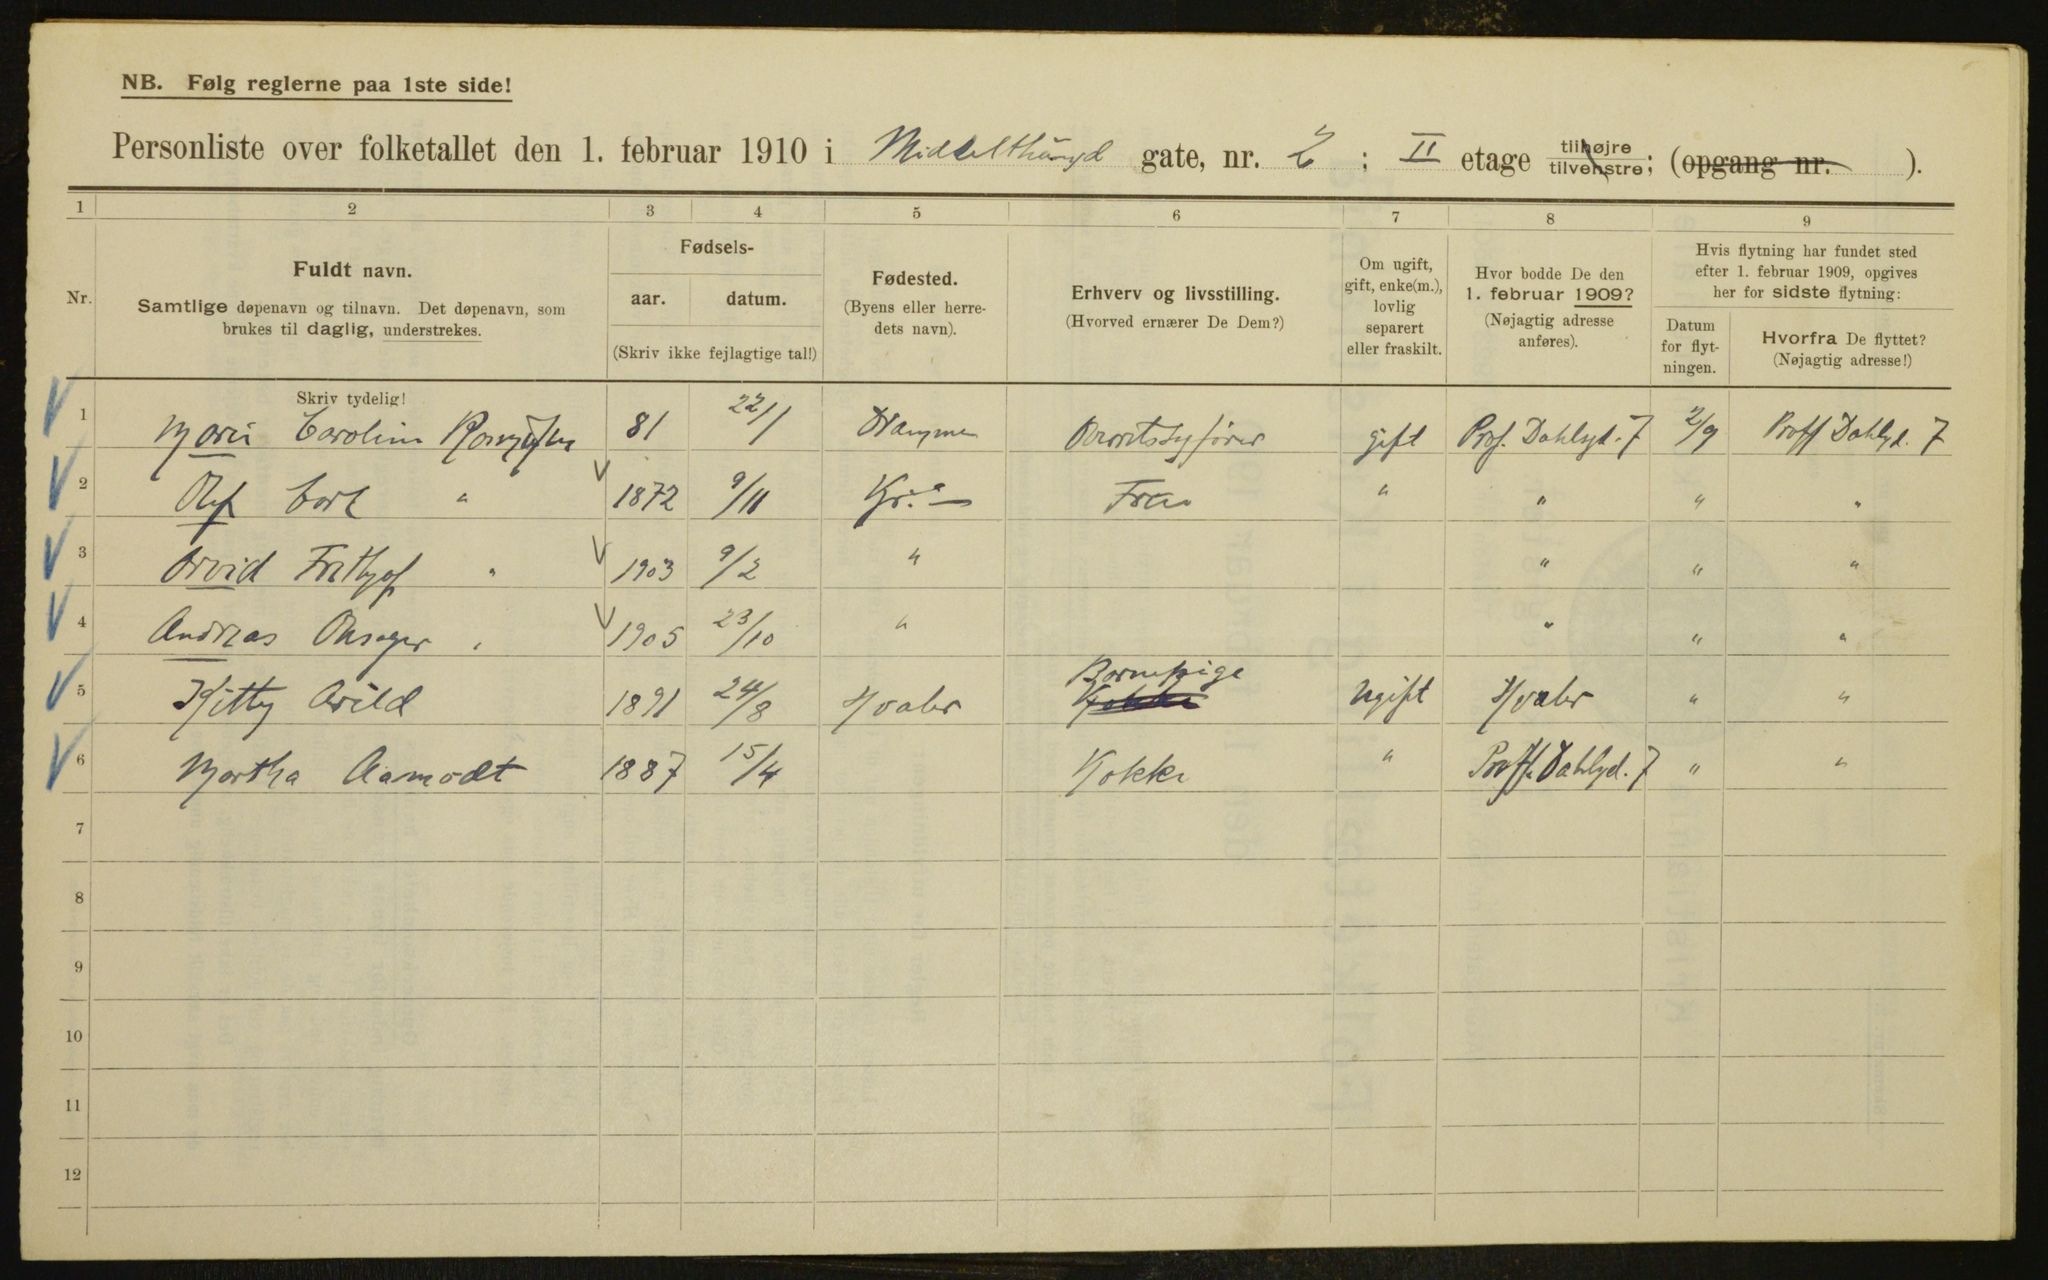 NB. Følg reglerne paa 1ste side!
Personliste over folketallet den 1. februar 1910 i Middelthunsgd gate, nr. 2 ; II etage tilhøjre tilvenstre; (opgang nr. ).
1 2 3 4 5 6 7 8 9
Nr.
Fuldt navn.
Samtlige døpenavn og tilnavn. Det døpenavn, som
brukes til daglig, understrekes.
Skriv tydelig!
Fødsels-
aar. datum.
(Skriv ikke fejlagtige tal!)
Fødested.
(Byens eller herre-
dets navn).
Erhverv og livsstilling.
(Hvorved ernærer De Dem?)
Om ugift,
gift, enke(m.),
lovlig
separert
eller fraskilt.
Hvor bodde De den
1. februar 1909?
(Nøjagtig adresse
anføres).
Hvis flytning har fundet sted
efter 1. februar 1909, opgives
her for sidste flytning:
Datum
for flyt-
ningen.
Hvorfra De flyttet?
(Nøjagtig adresse!)
1 Marie Caroline 81 22/1 Drammen gift Prof. Dahlsgd. 7 2/9 Proff Dahlsgd. 7
2 Olaf Carl " 1872 9/11 Kr.a " " " "
3 Arvid Frithjof " 1903 9/2 " " " "
4 Andreas " 1905 23/10 " " " "
5 Kitty Arild 1891 24/8 Hvaler Barnepige Kokke Ugift Hvaler " "
6 Martha Aamodt 1887 15/4 Kokke " Proff. Dahlsgd. 7 " "
7
8
9
10
11
12